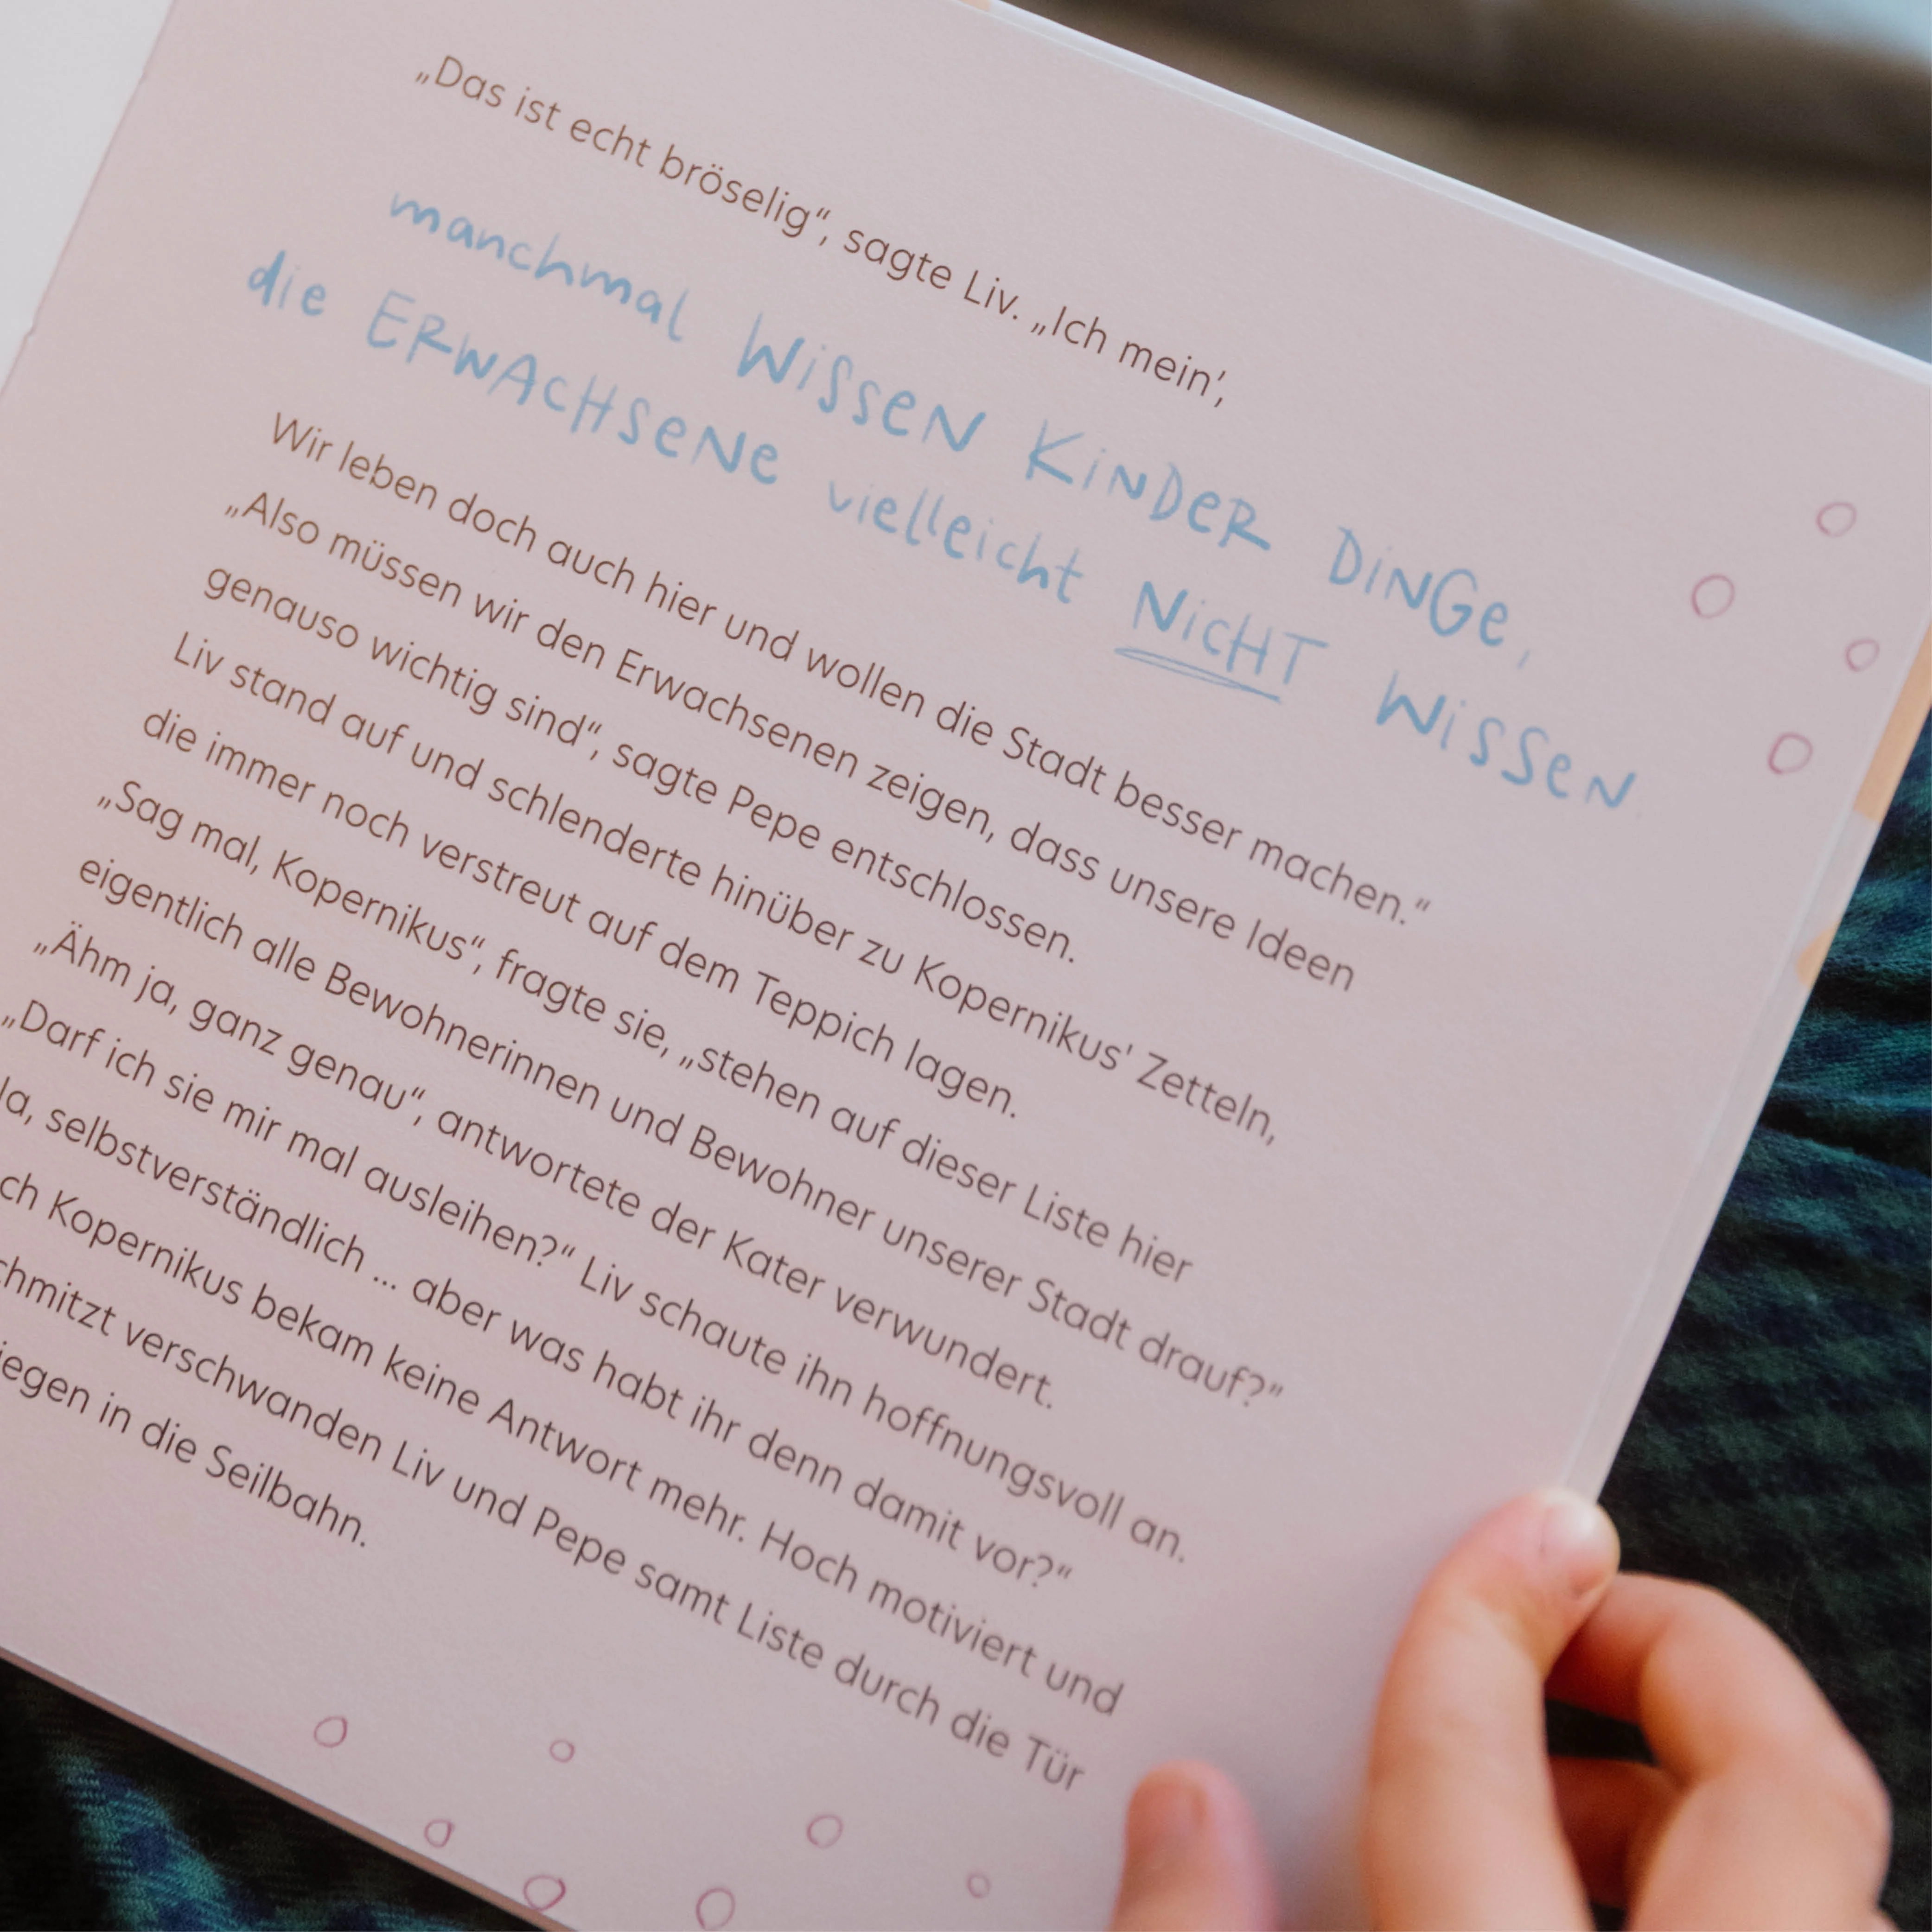 „Das ist echt bröselig“, sagte Liv. „Ich mein’,
manchmal WiSSeN KiNDeR DiNGe,
die ERWACHSeNe vielleicht NicHT WiSSeN.
Wir leben doch auch hier und wollen die Stadt besser machen.“
„Also müssen wir den Erwachsenen zeigen, dass unsere Ideen
genauso wichtig sind“, sagte Pepe entschlossen.
Liv stand auf und schlenderte hinüber zu Kopernikus' Zetteln,
die immer noch verstreut auf dem Teppich lagen.
„Sag mal, Kopernikus“, fragte sie, „stehen auf dieser Liste hier
eigentlich alle Bewohnerinnen und Bewohner unserer Stadt drauf?“
„Ähm ja, ganz genau“, antwortete der Kater verwundert.
„Darf ich sie mir mal ausleihen?“ Liv schaute ihn hoffnungsvoll an.
Ja, selbstverständlich ... aber was habt ihr denn damit vor?“
ch Kopernikus bekam keine Antwort mehr. Hoch motiviert und
chmitzt verschwanden Liv und Pepe samt Liste durch die Tür
iegen in die Seilbahn.